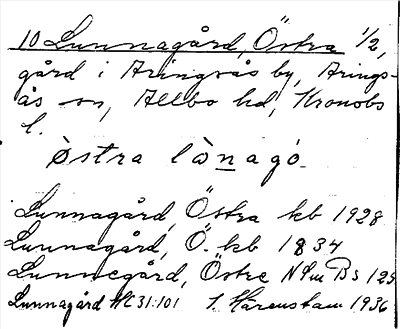 10 Lunnagård, Östra 1/2,
gård i Aringsås by, Arings-
ås sn, Allbo hd, Kronobs
l.
östra lànagó.
Lunnagård, Östra kb 1928
Lunnagård, Ö. kb 1834
Lunnegård, Östre Bs 123
Lunnagård HC 31:101 1. Härenstam 1936